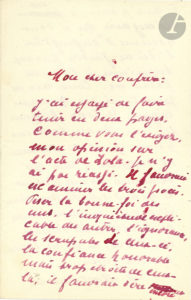 Mon cher confrère :
j'ai essayé de faire
tenir en deux pages,
comme vous l'exigez,
mon opinion sur
l'acte de Zola. Je n'y
ai pas réussi. Il faudrait
examiner les trois procès.
Peser la bonne foi des
uns, l'inquiétude
des autres, l'ignorance,
les scrupules de ceux-ci,
la confiance honorable
mais trop étroite de ceux-
là ; il faudrait être
ader